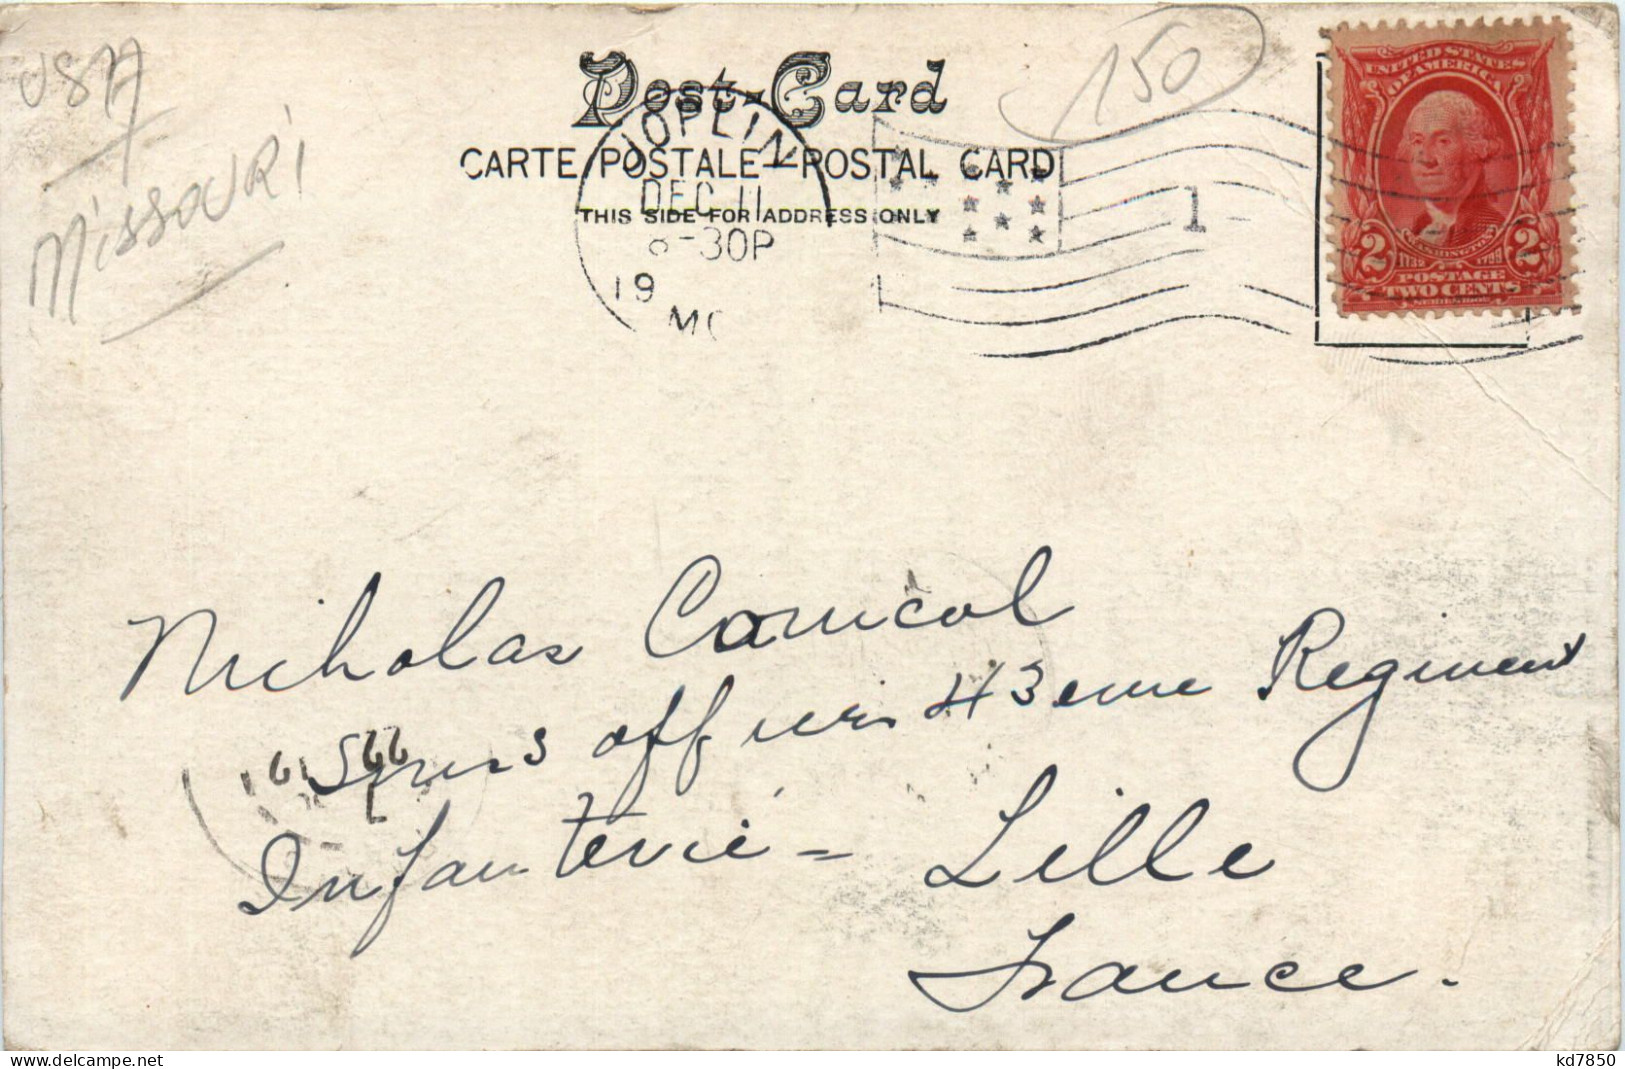 USA
Missouri
150
Post-Card
CARTE POSTALE—POSTAL CARD
THIS SIDE FOR ADDRESS ONLY
JOPLIN
DEC 11
8-30P
19
MO
1
UNITED STATES
OF AMERICA
WASHINGTON
2 2
POSTAGE
TWO CENTS
SERIES 1902
Nicholas
officier 43eme Regiment
Infanterie = Lille
France.
kd7850
www.delcampe.net